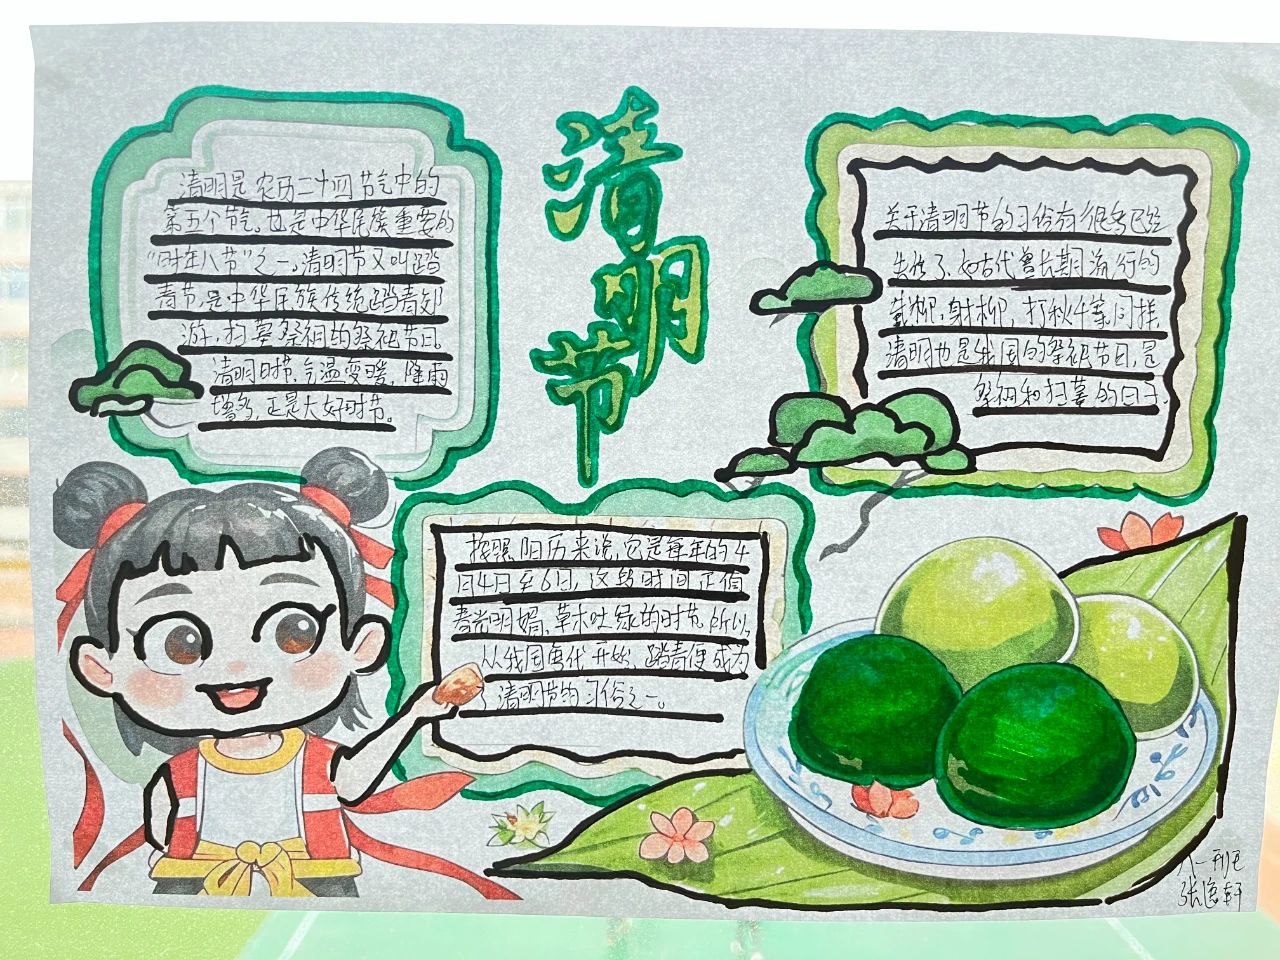 清明节
清明是农历二十四节气中的
第五个节气。也是中华民族重要的
“时年八节”之一。清明节又叫踏
春节,是中华民族传统踏青郊
游,扫墓祭祖的祭祀节日。
清明时节,气温变暖,降雨
增多,正是大好时节。
关于清明节的习俗有很多已经
失传了,如古代曾长期流行的
戴柳,射柳,打秋千等,同样,
清明也是我国的祭祀节日,是
祭祖和扫墓的日子。
按照阳历来说,它是每年的4
月4日至6日,这段时间正值
春光明媚,草木吐绿的时节,所以,
从我国唐代开始,踏青便成为
了清明节的习俗之一。
八一班
张逸轩